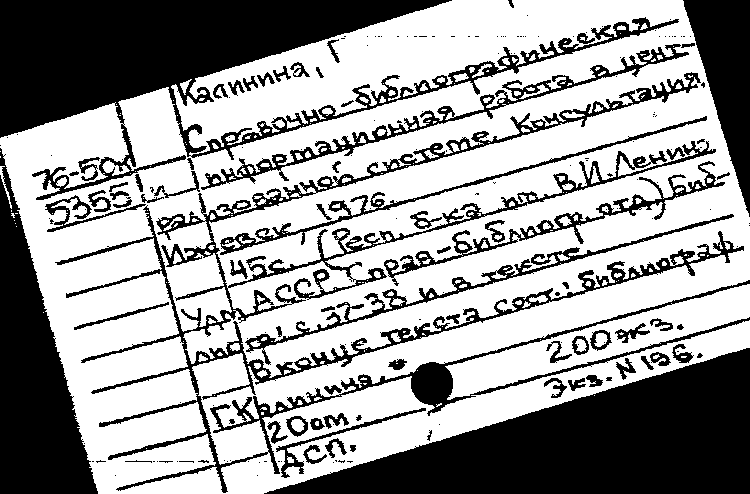 Калинина, Г
Справочно-библиографическая
76-50к информационная работа в цент-
5355 и рализованной системе. Консультация.
Ижевск, 1976.
45с. (Респ. б-ка им. В.И.Ленина
Удм АССР. Справ-библиогр. отд.) Биб-
лиогр: с. 37-38 и в тексте.
В конце текста сост.: библиограф
Г.Калинина. *
20 от. 200 экз.
ДСП. Экз. N 196.